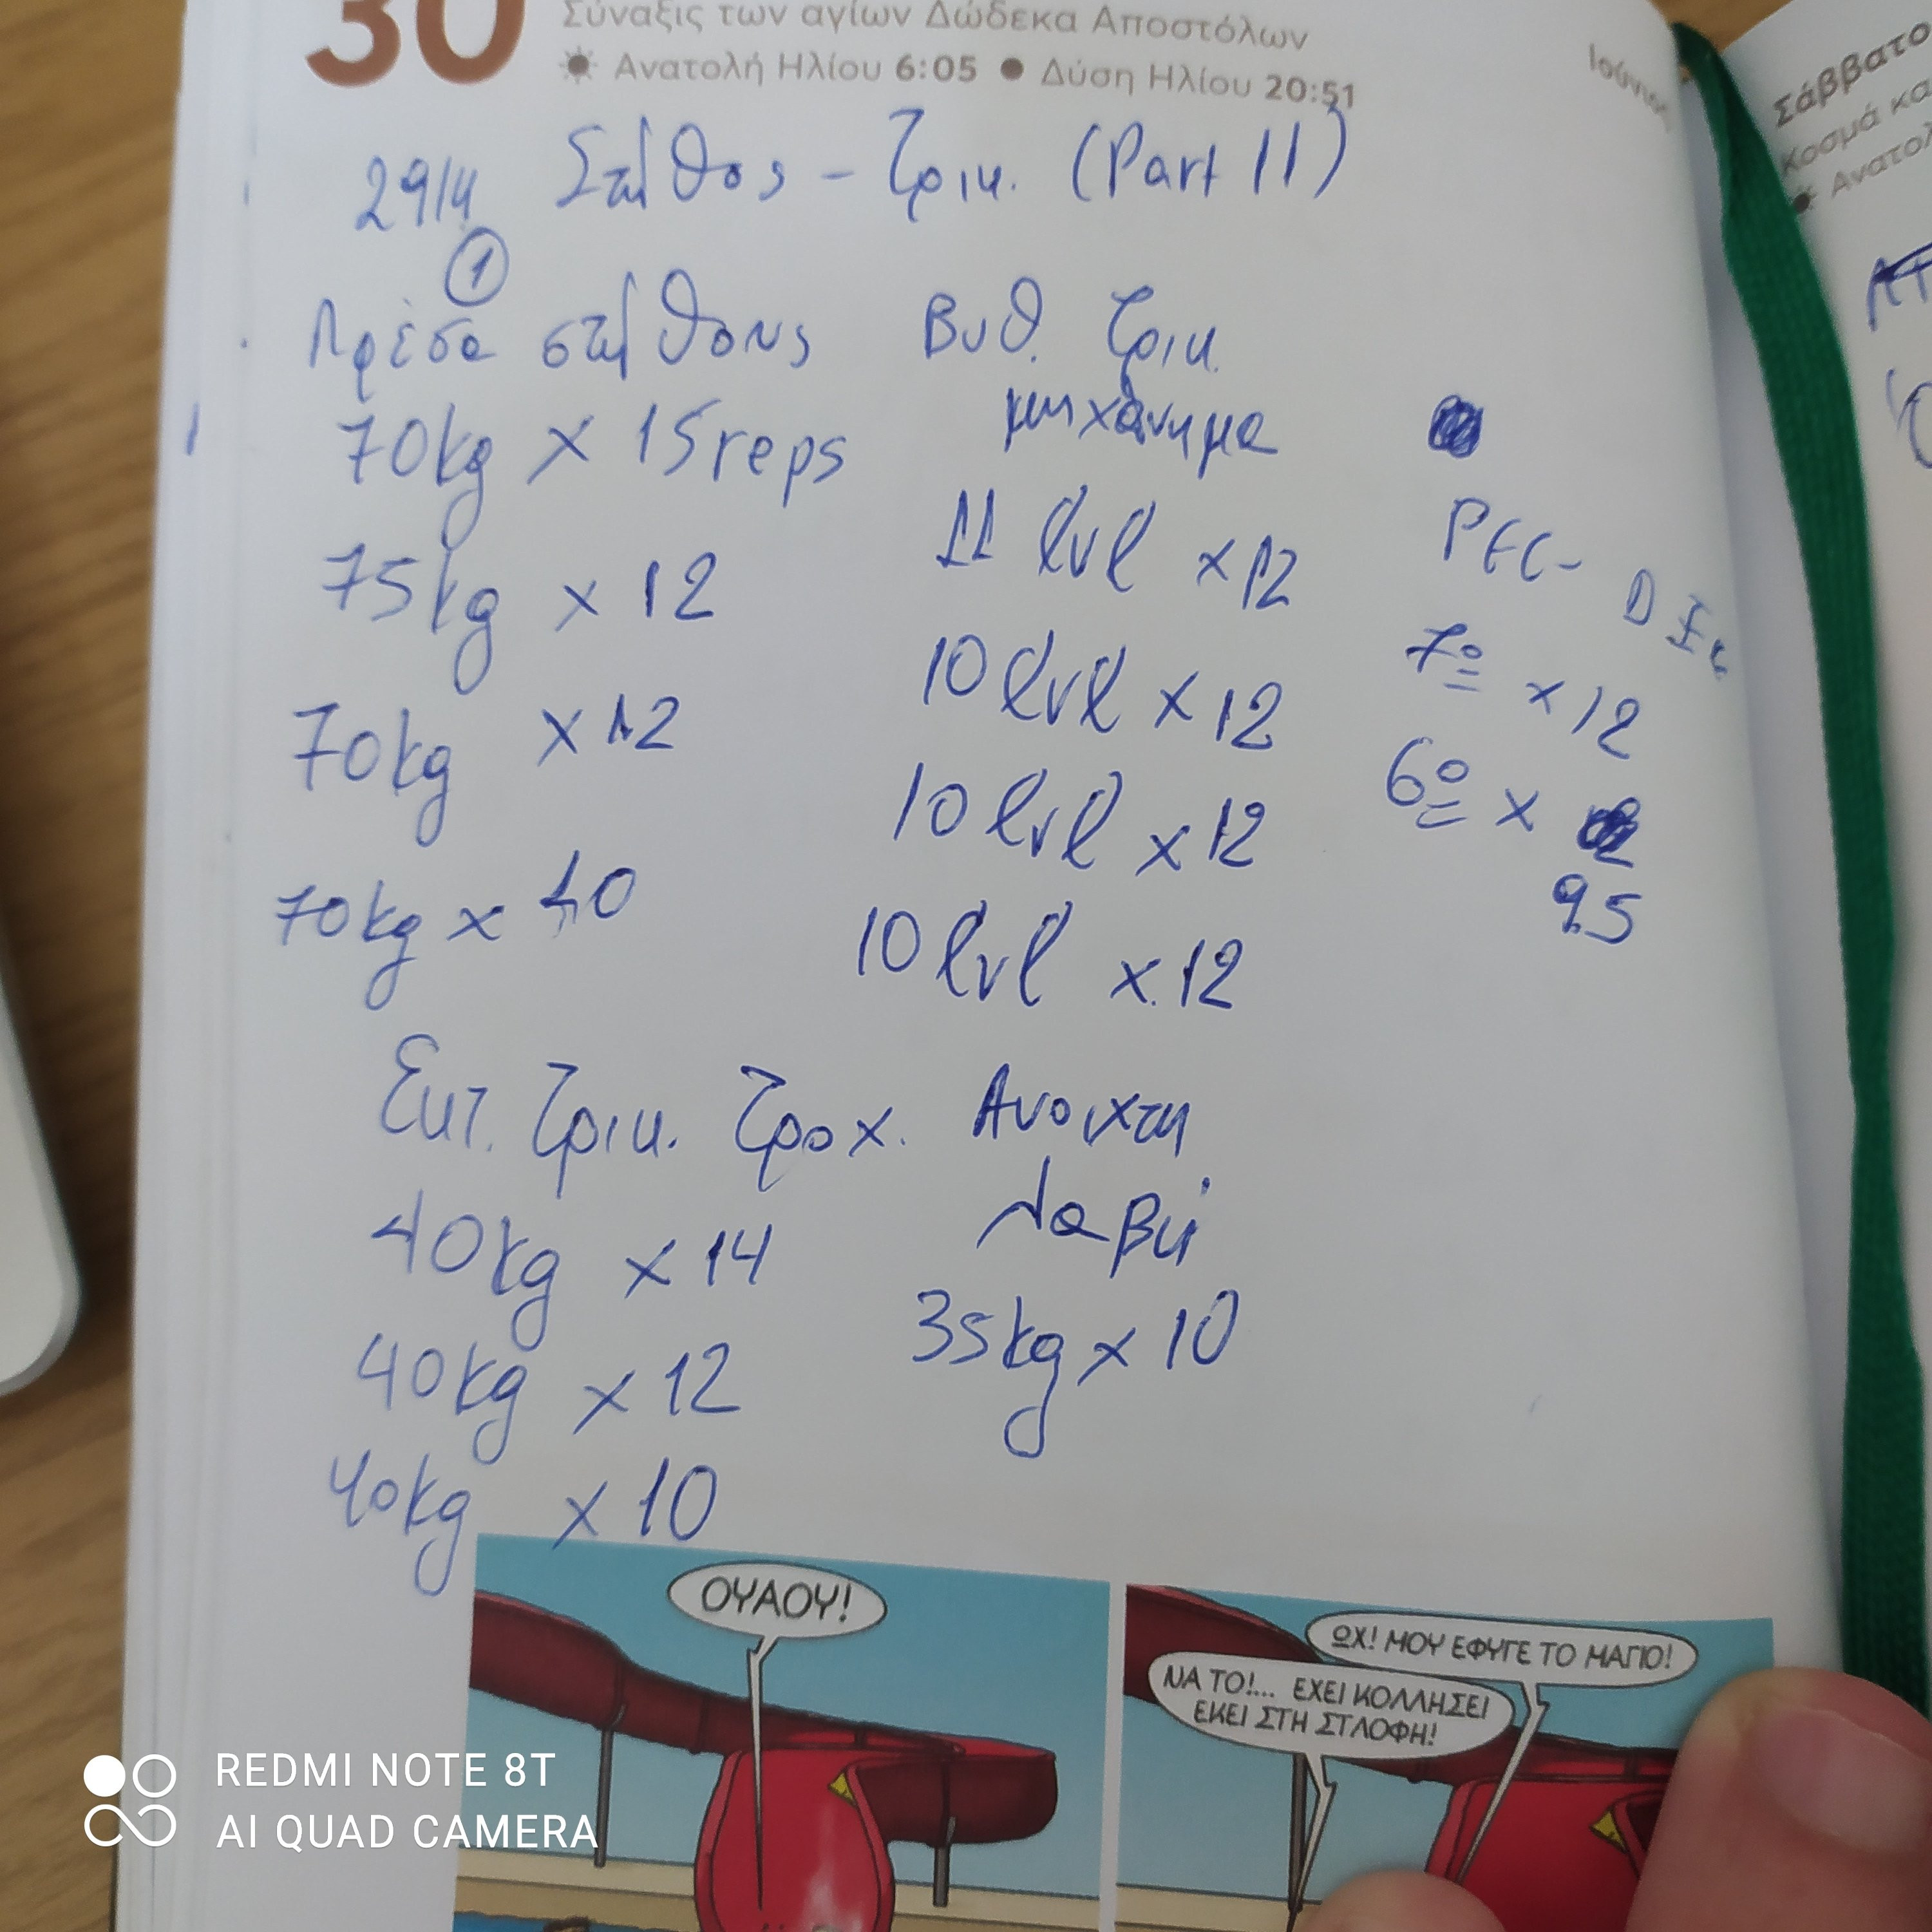 30
Σύναξις των αγίων Δώδεκα Αποστόλων
Ανατολή Ηλίου 6:05 • Δύση Ηλίου 20:51
Ιούνιος
29/4 Στήθος - Τρικ. (Part II)
1
Πρέσα στήθους
70kg x 15reps
75kg x 12
70kg x 12
70kg x 10
Βυθ. Τρικ.
μηχάνημα
11 lvl x 12
10 lvl x 12
10 lvl x 12
10 lvl x 12
PEC-
7º x 12
6º x
9.5
Εκτ. Τρικ. Τροχ.
40kg x 14
40kg x 12
40kg x 10
Ανοιχτη
Λαβή
35kg x 10
ΟΥΑΟΥ!
ΩΧ! ΜΟΥ ΕΦΥΓΕ ΤΟ ΜΑΓΙΟ!
ΝΑ ΤΟ!... ΕΧΕΙ ΚΟΛΛΗΣΕΙ
ΕΚΕΙ ΣΤΗ ΣΤΛΟΦΗ!
Σάββατο
Κοσμά κα
Ανατολ
REDMI NOTE 8T
AI QUAD CAMERA